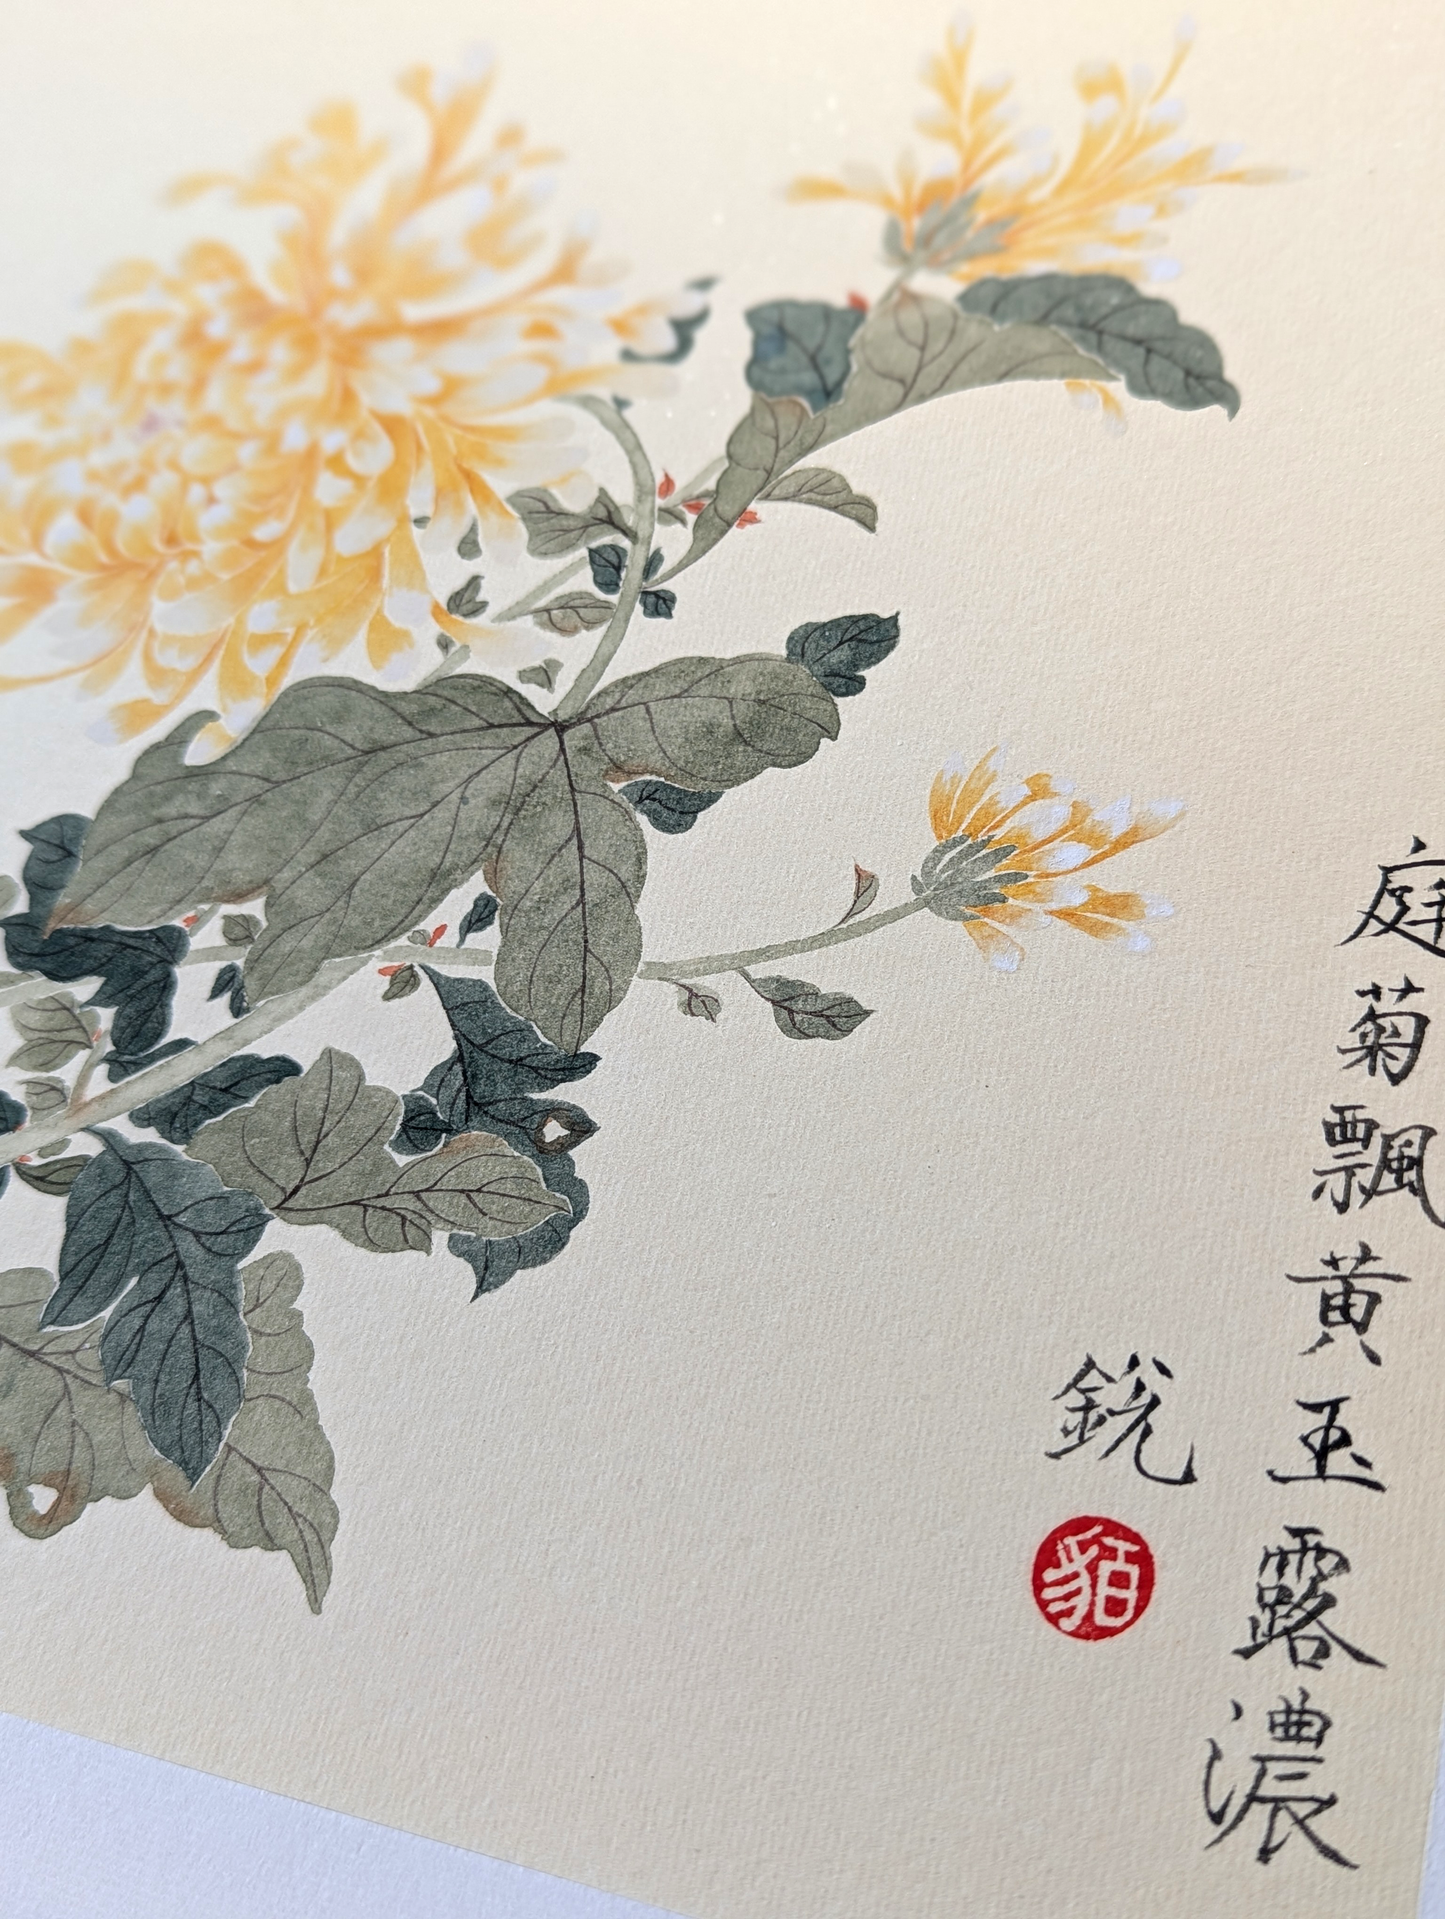 庭菊飄黄玉露濃
銳
貊